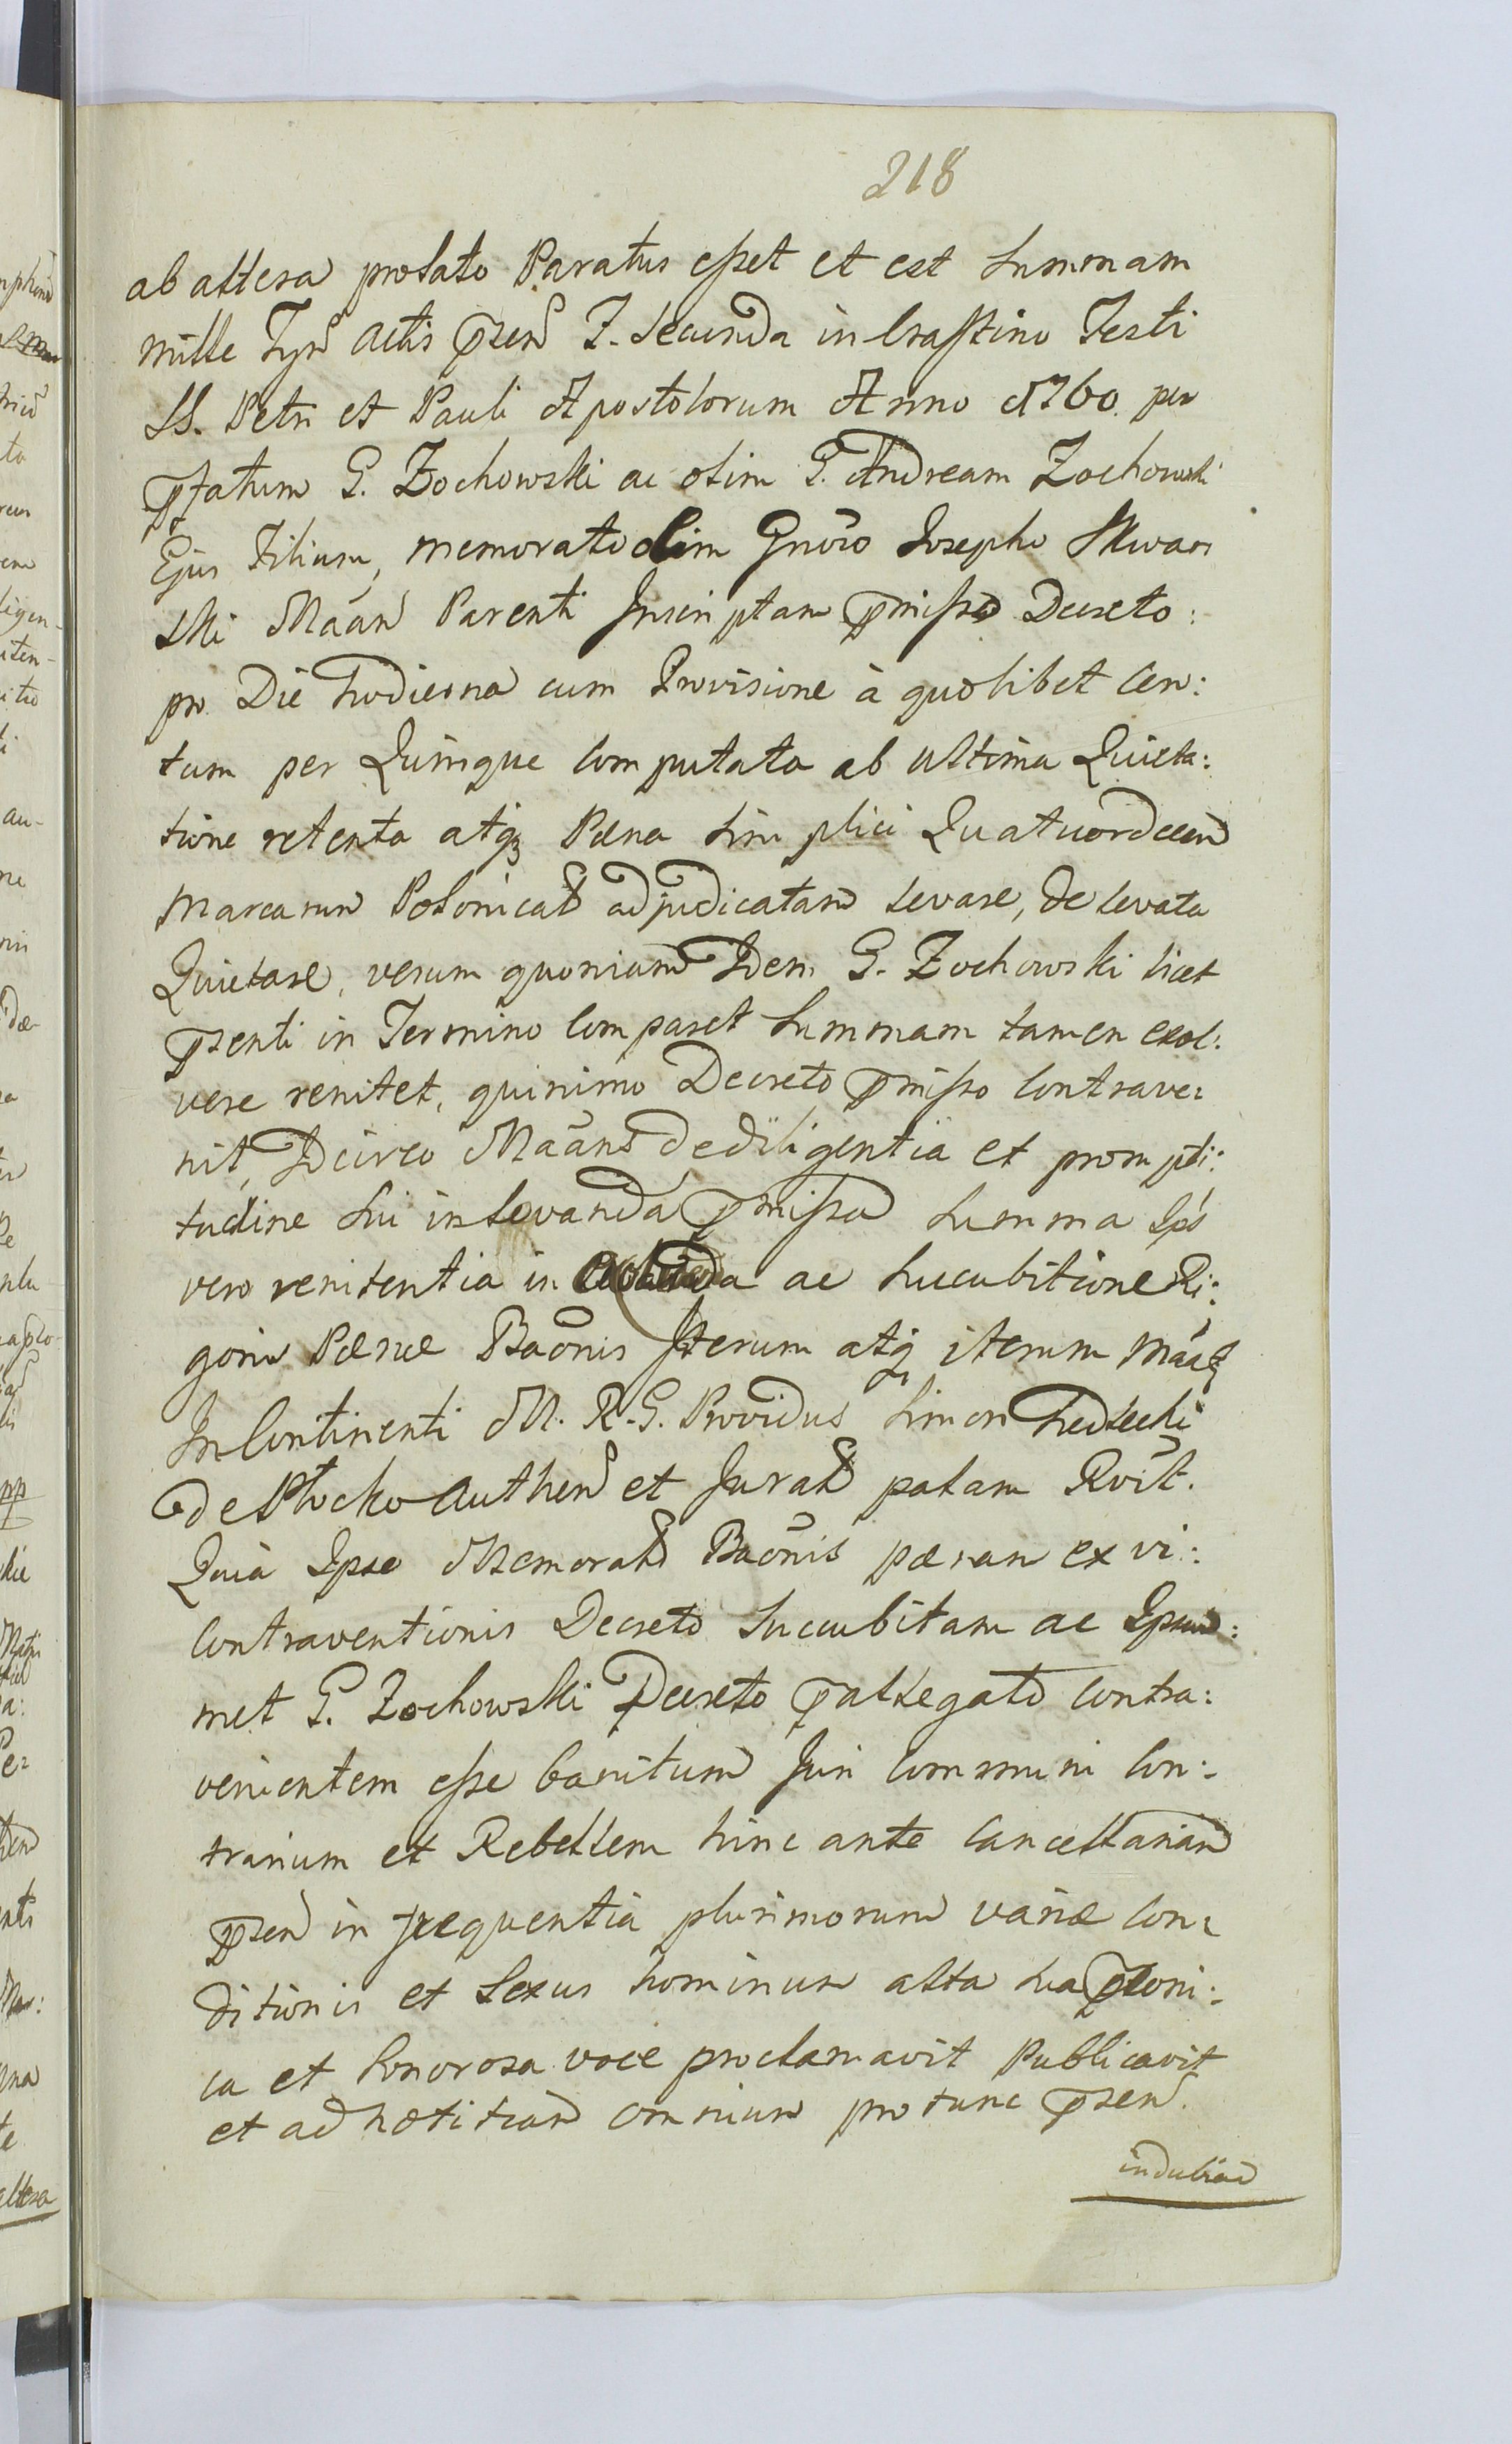 218
ab altera prolato Paratus esset et est Summam
mille Tyn actis pzen F. Secunda in Crastino Festi
SS. Petri et Pauli Apostolorum Anno 1760. per
pfatum G. Zochowski ac olim G. Andream Zochowski
Ejus Filium, memorato olim Gnoso Josepho Skwar
ski Maan Parenti Inscriptam pmisso Decreto:
pro Die hodierna cum Provisione à quolibet Cen:
tum per Quinque Computata ab ultima Quieta:
tione retenta atq Pœna Simplici Quatuordecim
Marcarum Polonical adjudicatam levare, de levata
Quietare, verum quoniam Idem G. Zochowski licet
pzenti in Termino Comparet Summam tamen exol:
vere renitet, quinimo Decreto pmisso Contrave:
nit, Idcirco Maans de diligentia et prompti:
tudine Sui in levanda pmissa Summa Ips
vero renitentia in ac Succubitione Ri:
goris Pœnæ Baonis Iterum atq iterum maat
In Continenti M. R. G. Providus Simon
de Plocko Authen et Jurat palam Roit.
Quia Ipse Memorat Baonis pœnam ex vi:
Contraventionis Decreto Succubitam ac Ipsum:
met G. Zochowski Decreto pallegato Contra:
venientem esse banitum Juri Communi Con:
trarium et Rebellem hinc ante Cancellariam
pzen in frequentia plurimorum variæ Con:
ditionis et Sexus hominum alta sua pconi:
ca et Sonorosa voce proclamavit Publicavit
et ad notitiam omnium protunc pzen.
indubiam